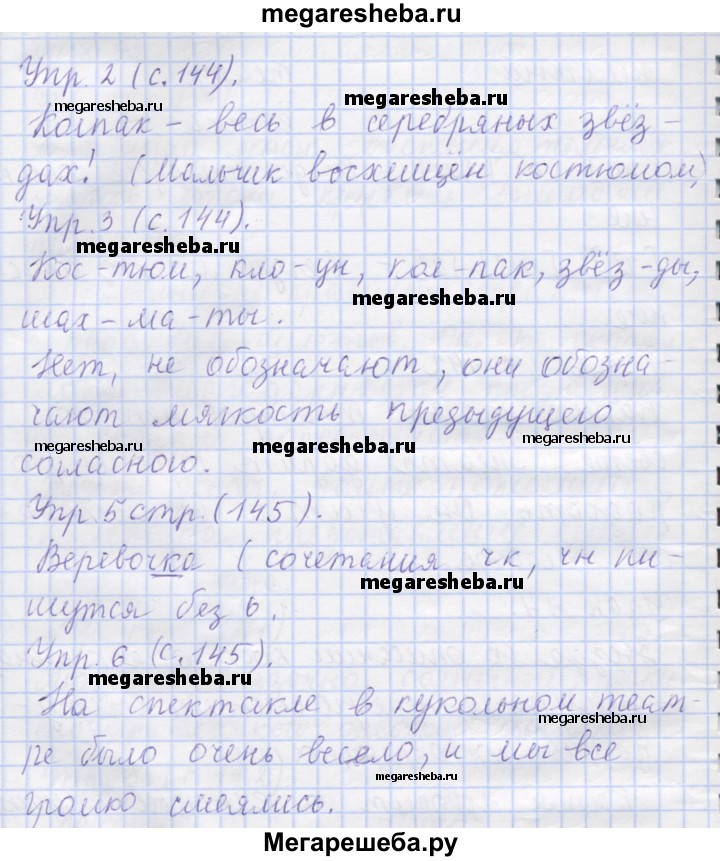 megaresheba.ru
Упр. 2 (с. 144).
megaresheba.ru
megaresheba.ru
Колпак – весь в серебряных звёз-
дах! (Мальчик восхищён костюмом)
Упр. 3 (с. 144).
megaresheba.ru
Кос-тюм, кло-ун, кол-пак, звёз-ды,
megaresheba.ru
шах-ма-ты.
Нет, не обозначают, они обозна-
чают мягкость предыдущего
megaresheba.ru
megaresheba.ru
megaresheba.ru
согласного.
Упр 5 стр. (145).
Веревочка (сочетания чк, чн пи-
megaresheba.ru
шутся без ь.
Упр. 6 (с. 145).
megaresheba.ru
На спектакле в кукольном теат-
megaresheba.ru
ре было очень весело, и мы все
megaresheba.ru
громко смеялись.
Мегарешеба.ру